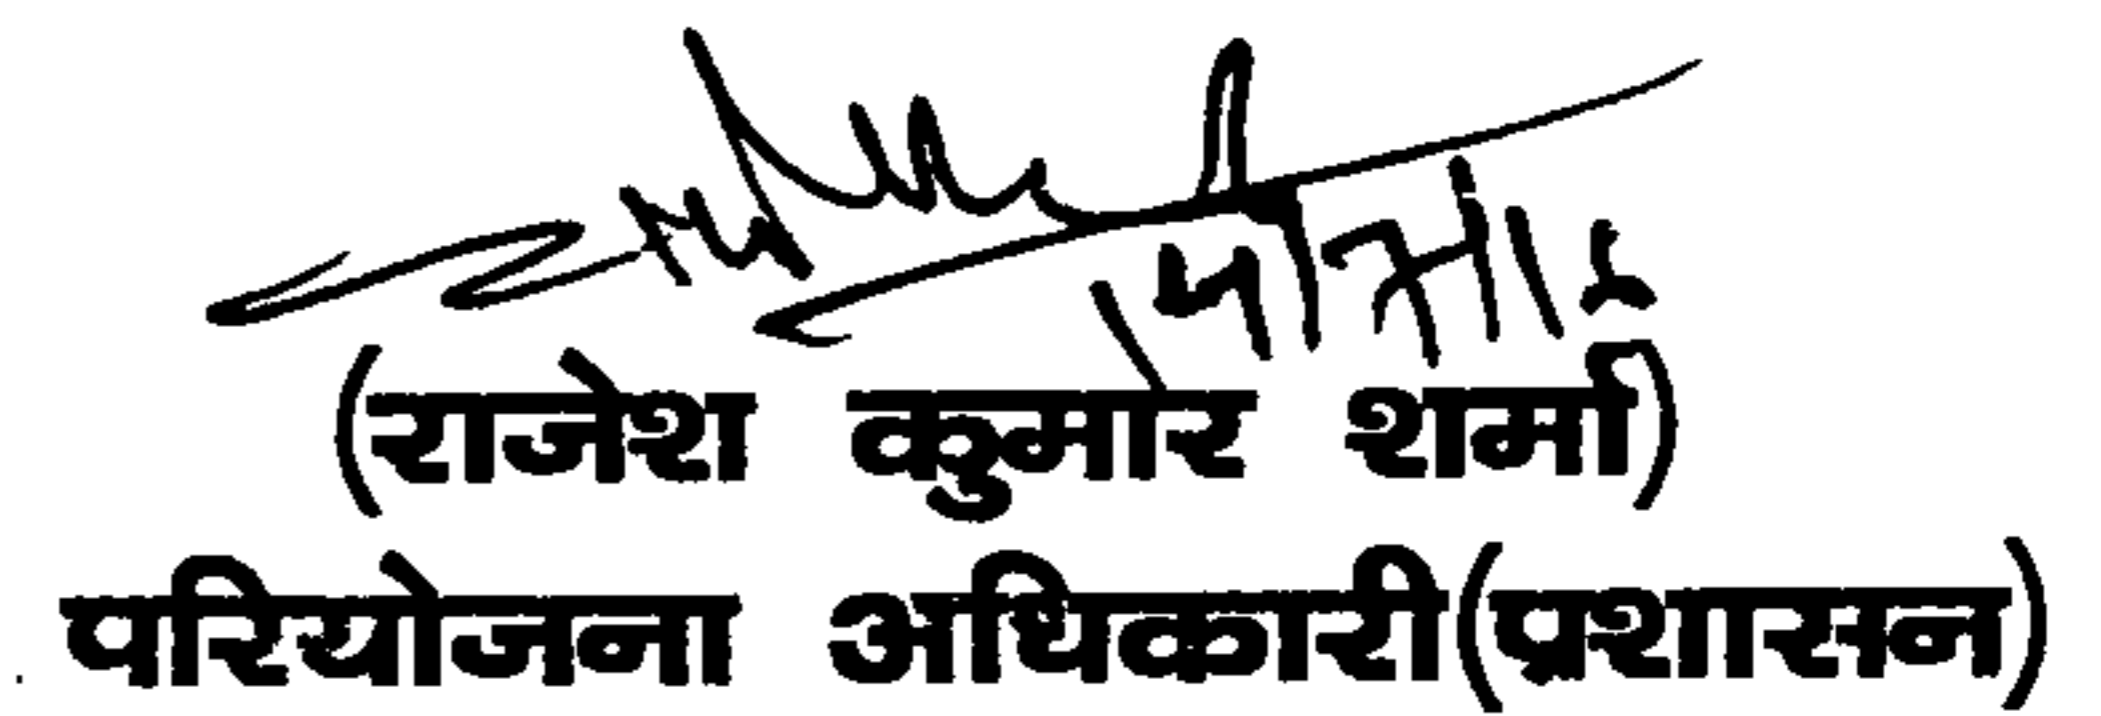 (राजेश कुमार शर्मा)
परियोजना अधिकारी(प्रशासन)